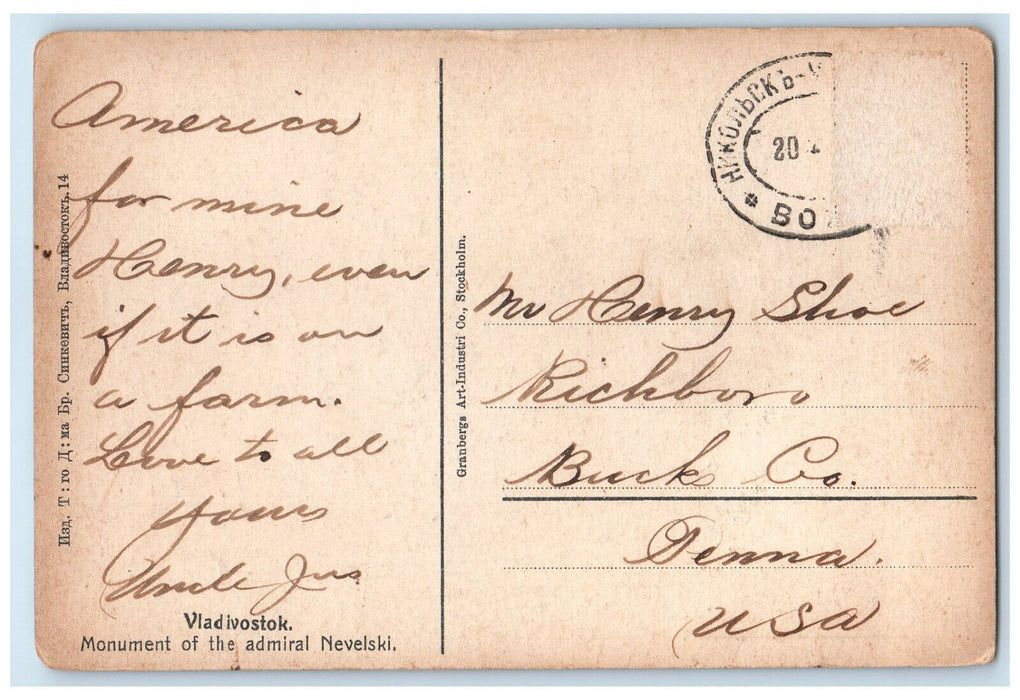 America
for mine
Henry, even
if it is on
a farm.
Love to all
Yours
Uncle
Vladivostok.
Monument of the admiral Nevelski.
Изд. Т : го Д : ма Бр. Синкевичъ, Владивостокъ. 14
Granbergs Art.-Industri Co., Stockholm.
НИКОЛЬСКЪ-
20
ВО
Mr Henry Shoe
Richboro
Bucks Co.
Penna.
USA